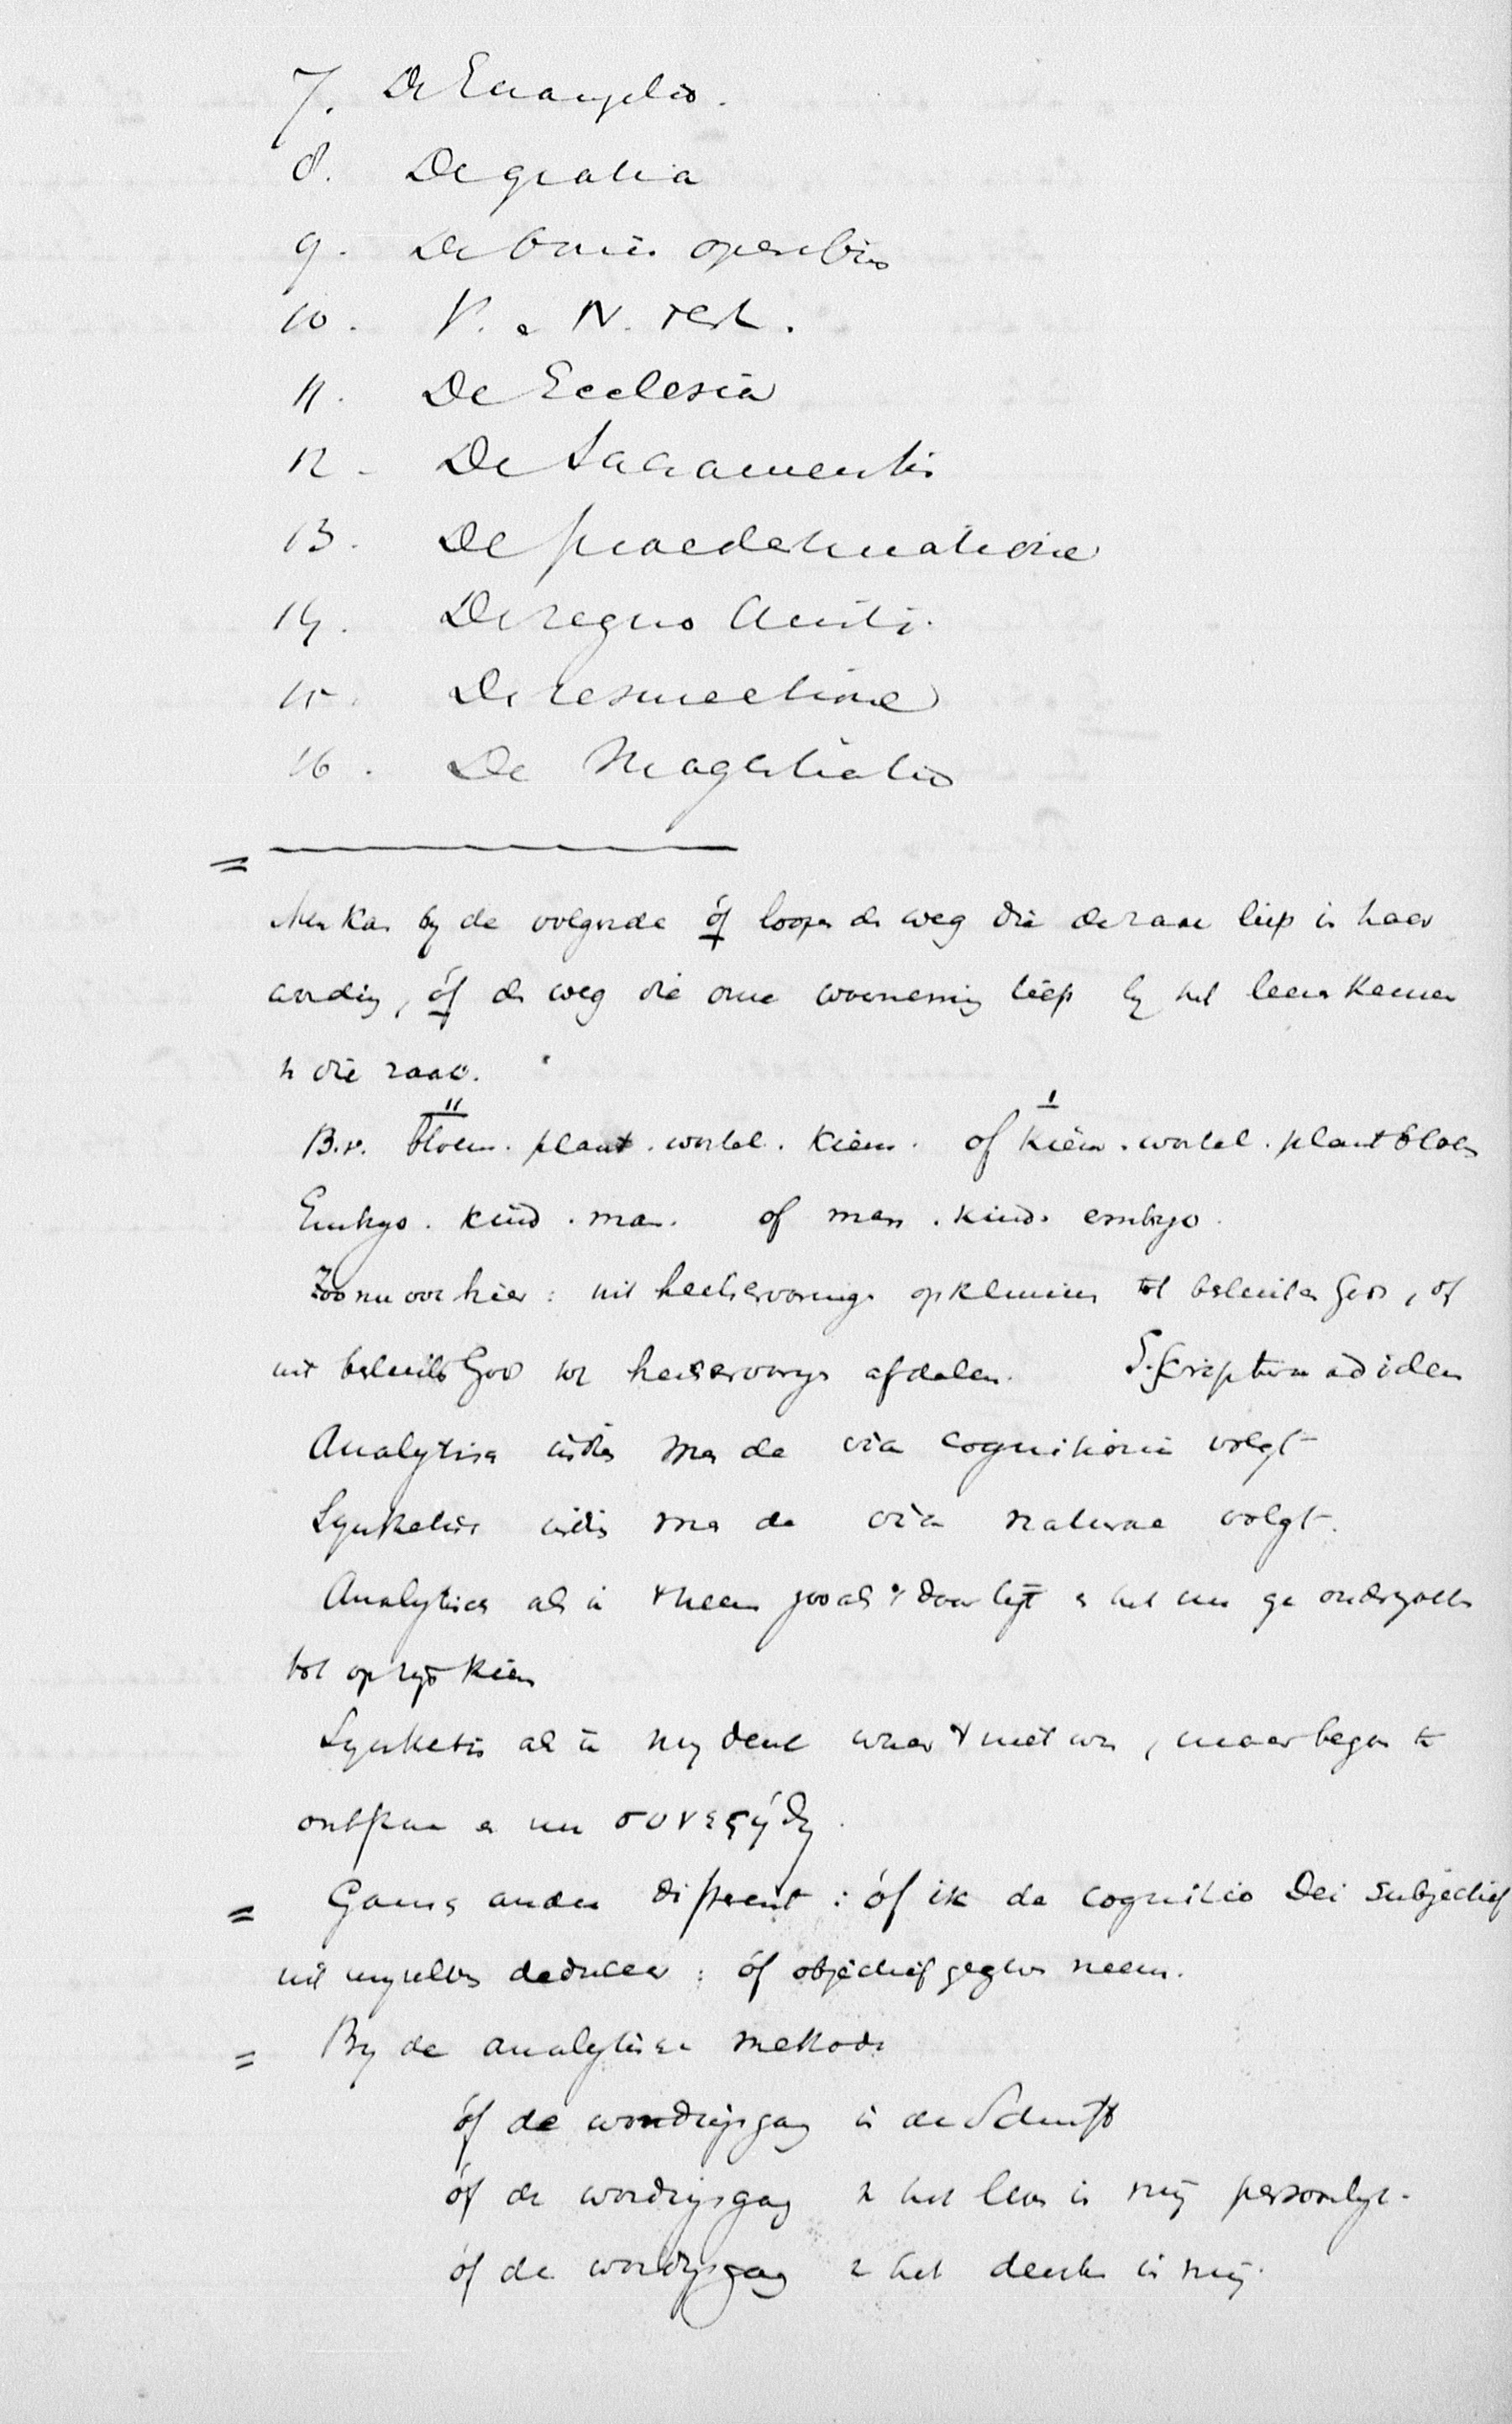 7. De Evangelio.
8. De gratia
9. De bonis operibus
10. V. e N. Test.
11. De Ecclesia
12. De Sacramentis
13. De praedestinatione
14. De regno Christi.
15. De resurrectione
16. De Magistratu
Men kan by de volgorde óf loopen de weg die de zaak liep in haar
wording, óf de weg die onze waarneming liep by het leeren kennen
v die zaak.
II I
B.v. bloem. plant. wortel. kiem. of kiem. wortel. plant bloem
Embryo. kind. man. of man. kind. embryo.
Zoo nu ook hier: uit heilservaringen opklimmen tot besluiten Gods, of
uit besluiten Gods tot heilservaringen afdalen. S. Scriptura ad idem
Analytisch indien men de via cognitionis volgt
Synthetisch indien men de via naturae volgt.
Analytisch als ik neem zooals daar ligt e het nu ga onderzoeken
tot op zijn kiem
Synthetisch als ik my denk niet was, maar begon te
ontstaan e nu
= Gansch anders different: óf ik de cognitio Dei subjectief
uit myzelven deduceer: óf objectief gegeven neem.
= By de analytische methode
óf de wordingsgang in de Schrift
óf de wordingsgang v het leven in mij persoonlyk.
óf de wordingsgang v het denken in mij.